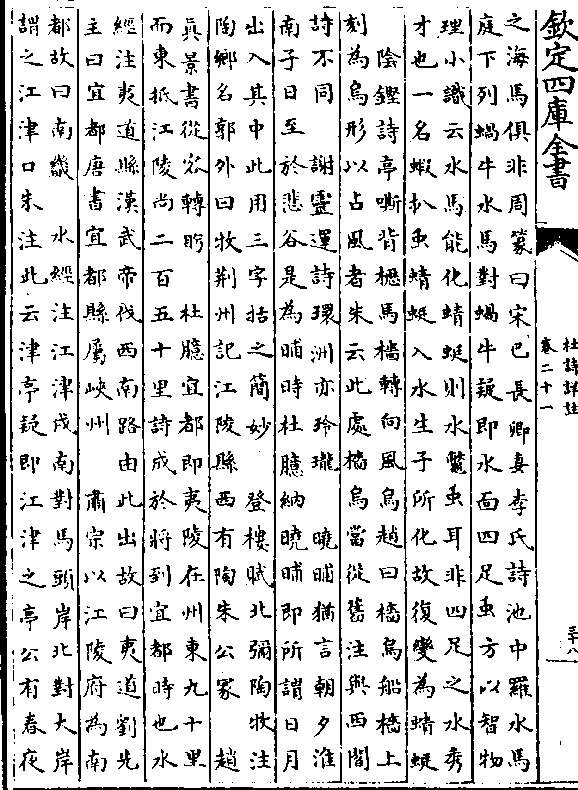 欽定四庫全書
杜詩詳註
卷二十一
三十八
之海馬俱非周篆曰宋已長卿妻李氏詩池中羅水馬
庭下列蝸牛水馬對蝸牛疑即水面四足虫方以智物
理小識云水馬能化蜻蜓則水蠆虫耳非四足之水秀
才也一名蝦扒虫蜻蜓入水生子所化故復變為蜻蜓
陰鏗詩亭嘶背櫪馬檣轉向風烏趙曰檣烏船檣上
刻為烏形以占風者朱云此處檣烏當從舊注與西閣
詩不同 謝靈運詩環洲亦玲瓏 曉晡猶言朝夕淮
南子日至於悲谷是為晡時杜臆納曉晡即所謂日月
出入其中此用三字括之簡妙 登樓賦北彌陶牧注
陶鄉名郭外曰牧荆州記江陵縣西有陶朱公冢 趙
真景書從容轉盻 杜臆宜都即夷陵在州東九十里
而東抵江陵尚二百五十里詩成於將到宜都時也水
經注夷道縣漢武帝伐西南路由此出故曰夷道劉先
主曰宜都唐書宜都縣屬峽州 肅宗以江陵府為南
都故曰南畿 水經注江津戍南對馬頭岸北對大岸
謂之江津口朱注此云津亭疑即江津之亭公有春夜